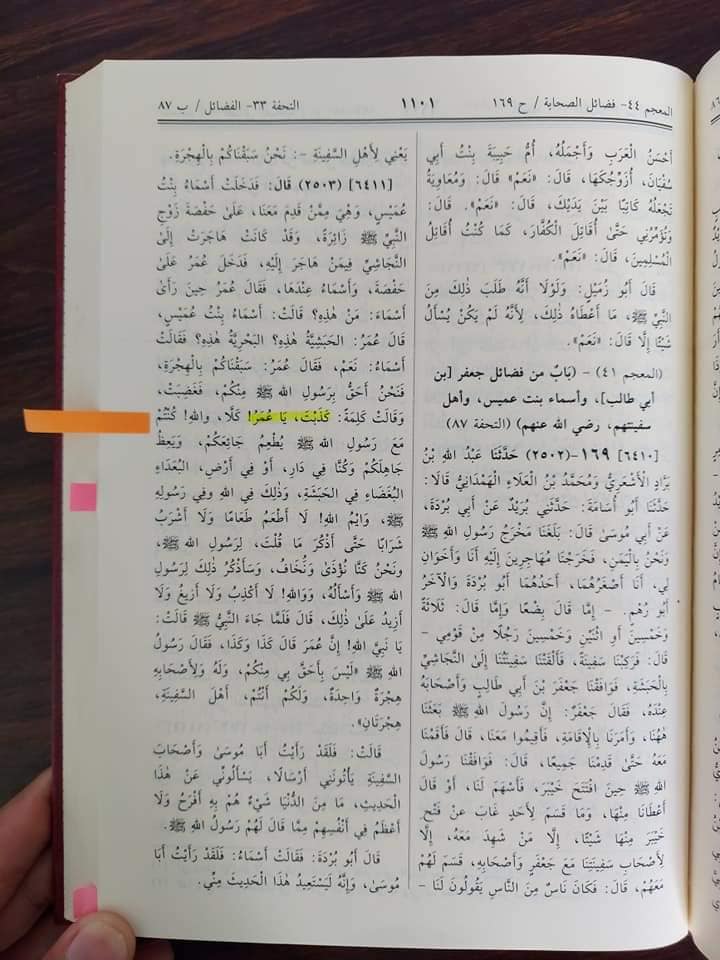 المعجم ٤٤- فضائل الصحابة / ح ١٦٩
١١٠١
التحفة ٣٣- الفضائل / ب ٨٧
أَحْسَنُ الْعَرَبِ وَأَجْمَلُهُ، أُمُّ حَبِيبَةَ بِنْتُ أَبِي
سُفْيَانَ، أُزَوِّجُكَهَا، قَالَ: «نَعَمْ» قَالَ: وَمُعَاوِيَةُ
تَجْعَلُهُ كَاتِبًا بَيْنَ يَدَيْكَ، قَالَ: «نَعَمْ». قَالَ:
وَتُؤَمِّرُنِي حَتَّى أُقَاتِلَ الْكُفَّارَ، كَمَا كُنْتُ أُقَاتِلُ
الْمُسْلِمِينَ، قَالَ: «نَعَمْ».
قَالَ أَبُو زُمَيْلٍ: وَلَوْلَا أَنَّهُ طَلَبَ ذَلِكَ مِنَ
النَّبِيِّ ﷺ، مَا أَعْطَاهُ ذَلِكَ، لِأَنَّهُ لَمْ يَكُنْ يُسْأَلُ
شَيْئًا إِلَّا قَالَ: «نَعَمْ».
(المعجم ٤١) - (بَابٌ من فضائل جعفر [بن
أبي طالب]، وأسماء بنت عميس، وأهل
سفينتهم، رضي الله عنهم) (التحفة ٨٧)
[٦٤١٠] ١٦٩-(٢٥٠٢) حَدَّثَنَا عَبْدُ اللهِ بْنُ
بَرَّادٍ الْأَشْعَرِيُّ وَمُحَمَّدُ بْنُ الْعَلَاءِ الْهَمْدَانِيُّ قَالَا:
حَدَّثَنَا أَبُو أُسَامَةَ: حَدَّثَنِي بُرَيْدٌ عَنْ أَبِي بُرْدَةَ،
عَنْ أَبِي مُوسَى قَالَ: بَلَغَنَا مَخْرَجُ رَسُولِ اللهِ ﷺ
وَنَحْنُ بِالْيَمَنِ، فَخَرَجْنَا مُهَاجِرِينَ إِلَيْهِ أَنَا وَأَخَوَانِ
لِي، أَنَا أَصْغَرُهُمَا، أَحَدُهُمَا أَبُو بُرْدَةَ وَالْآخَرُ
أَبُو رُهْمٍ. - إِمَّا قَالَ بِضْعًا وَإِمَّا قَالَ: ثَلَاثَةً
وَخَمْسِينَ أَوِ اثْنَيْنِ وَخَمْسِينَ رَجُلًا مِنْ قَوْمِي -
قَالَ: فَرَكِبْنَا سَفِينَةً، فَأَلْقَتْنَا سَفِينَتُنَا إِلَى النَّجَاشِيِّ
بِالْحَبَشَةِ، فَوَافَقْنَا جَعْفَرَ بْنَ أَبِي طَالِبٍ وَأَصْحَابَهُ
عِنْدَهُ، فَقَالَ جَعْفَرٌ: إِنَّ رَسُولَ اللهِ ﷺ بَعَثَنَا
هٰهُنَا، وَأَمَرَنَا بِالْإِقَامَةِ، فَأَقِيمُوا مَعَنَا، قَالَ فَأَقَمْنَا
مَعَهُ حَتَّى قَدِمْنَا جَمِيعًا، قَالَ: فَوَافَقْنَا رَسُولَ
اللهِ ﷺ حِينَ افْتَتَحَ خَيْبَرَ، فَأَسْهَمَ لَنَا، أَوْ قَالَ
أَعْطَانَا مِنْهَا، وَمَا قَسَمَ لِأَحَدٍ غَابَ عَنْ فَتْحِ
خَيْبَرَ مِنْهَا شَيْئًا، إِلَّا مَنْ شَهِدَ مَعَهُ، إِلَّا
لِأَصْحَابِ سَفِينَتِنَا مَعَ جَعْفَرٍ وَأَصْحَابِهِ، قَسَمَ لَهُمْ
مَعَهُمْ، قَالَ: فَكَانَ نَاسٌ مِنَ النَّاسِ يَقُولُونَ لَنَا -
يَعْنِي لِأَهْلِ السَّفِينَةِ -: نَحْنُ سَبَقْنَاكُمْ بِالْهِجْرَةِ.
[٦٤١١] (٢٥٠٣) قَالَ: فَدَخَلَتْ أَسْمَاءُ بِنْتُ
عُمَيْسٍ، وَهِيَ مِمَّنْ قَدِمَ مَعَنَا، عَلَى حَفْصَةَ زَوْجِ
النَّبِيِّ ﷺ زَائِرَةً، وَقَدْ كَانَتْ هَاجَرَتْ إِلَى
النَّجَاشِيِّ فِيمَنْ هَاجَرَ إِلَيْهِ، فَدَخَلَ عُمَرُ عَلَى
حَفْصَةَ، وَأَسْمَاءُ عِنْدَهَا، فَقَالَ عُمَرُ حِينَ رَأَى
أَسْمَاءَ: مَنْ هٰذِهِ؟ قَالَتْ: أَسْمَاءُ بِنْتُ عُمَيْسٍ،
قَالَ عُمَرُ: الْحَبَشِيَّةُ هٰذِهِ؟ الْبَحْرِيَّةُ هٰذِهِ؟ فَقَالَتْ
أَسْمَاءُ: نَعَمْ، فَقَالَ عُمَرُ: سَبَقْنَاكُمْ بِالْهِجْرَةِ،
فَنَحْنُ أَحَقُّ بِرَسُولِ اللهِ ﷺ مِنْكُمْ، فَغَضِبَتْ،
وَقَالَتْ كَلِمَةً: كَذَبْتَ، يَا عُمَرُ! كَلَّا، وَاللهِ! كُنْتُمْ
مَعَ رَسُولِ اللهِ ﷺ يُطْعِمُ جَائِعَكُمْ، وَيَعِظُ
جَاهِلَكُمْ وَكُنَّا فِي دَارِ، أَوْ فِي أَرْضِ، الْبُعَدَاءِ
الْبُغَضَاءِ فِي الْحَبَشَةِ، وَذَلِكَ فِي اللهِ وَفِي رَسُولِهِ
ﷺ، وَايْمُ اللهِ! لَا أَطْعَمُ طَعَامًا وَلَا أَشْرَبُ
شَرَابًا حَتَّى أَذْكُرَ مَا قُلْتَ، لِرَسُولِ اللهِ ﷺ،
وَنَحْنُ كُنَّا نُؤْذَى وَنُخَافُ، وَسَأَذْكُرُ ذٰلِكَ لِرَسُولِ
اللهِ ﷺ وَأَسْأَلُهُ، وَوَاللهِ! لَا أَكْذِبُ وَلَا أَزِيغُ وَلَا
أَزِيدُ عَلَى ذٰلِكَ، قَالَ فَلَمَّا جَاءَ النَّبِيُّ ﷺ قَالَتْ:
يَا نَبِيَّ اللهِ! إِنَّ عُمَرَ قَالَ كَذَا وَكَذَا، فَقَالَ رَسُولُ
اللهِ ﷺ «لَيْسَ بِأَحَقَّ بِي مِنْكُمْ، وَلَهُ وَلِأَصْحَابِهِ
هِجْرَةٌ وَاحِدَةٌ، وَلَكُمْ أَنْتُمْ، أَهْلَ السَّفِينَةِ،
هِجْرَتَانِ».
قَالَتْ: فَلَقَدْ رَأَيْتُ أَبَا مُوسَى وَأَصْحَابَ
السَّفِينَةِ يَأْتُونَنِي أَرْسَالًا، يَسْأَلُونِي عَنْ هٰذَا
الْحَدِيثِ، مَا مِنَ الدُّنْيَا شَيْءٌ هُمْ بِهِ أَفْرَحُ وَلَا
أَعْظَمُ فِي أَنْفُسِهِمْ مِمَّا قَالَ لَهُمْ رَسُولُ اللهِ ﷺ.
قَالَ أَبُو بُرْدَةَ: فَقَالَتْ أَسْمَاءُ: فَلَقَدْ رَأَيْتُ أَبَا
مُوسَى، وَإِنَّهُ لَيَسْتَعِيدُ هٰذَا الْحَدِيثَ مِنِّي.